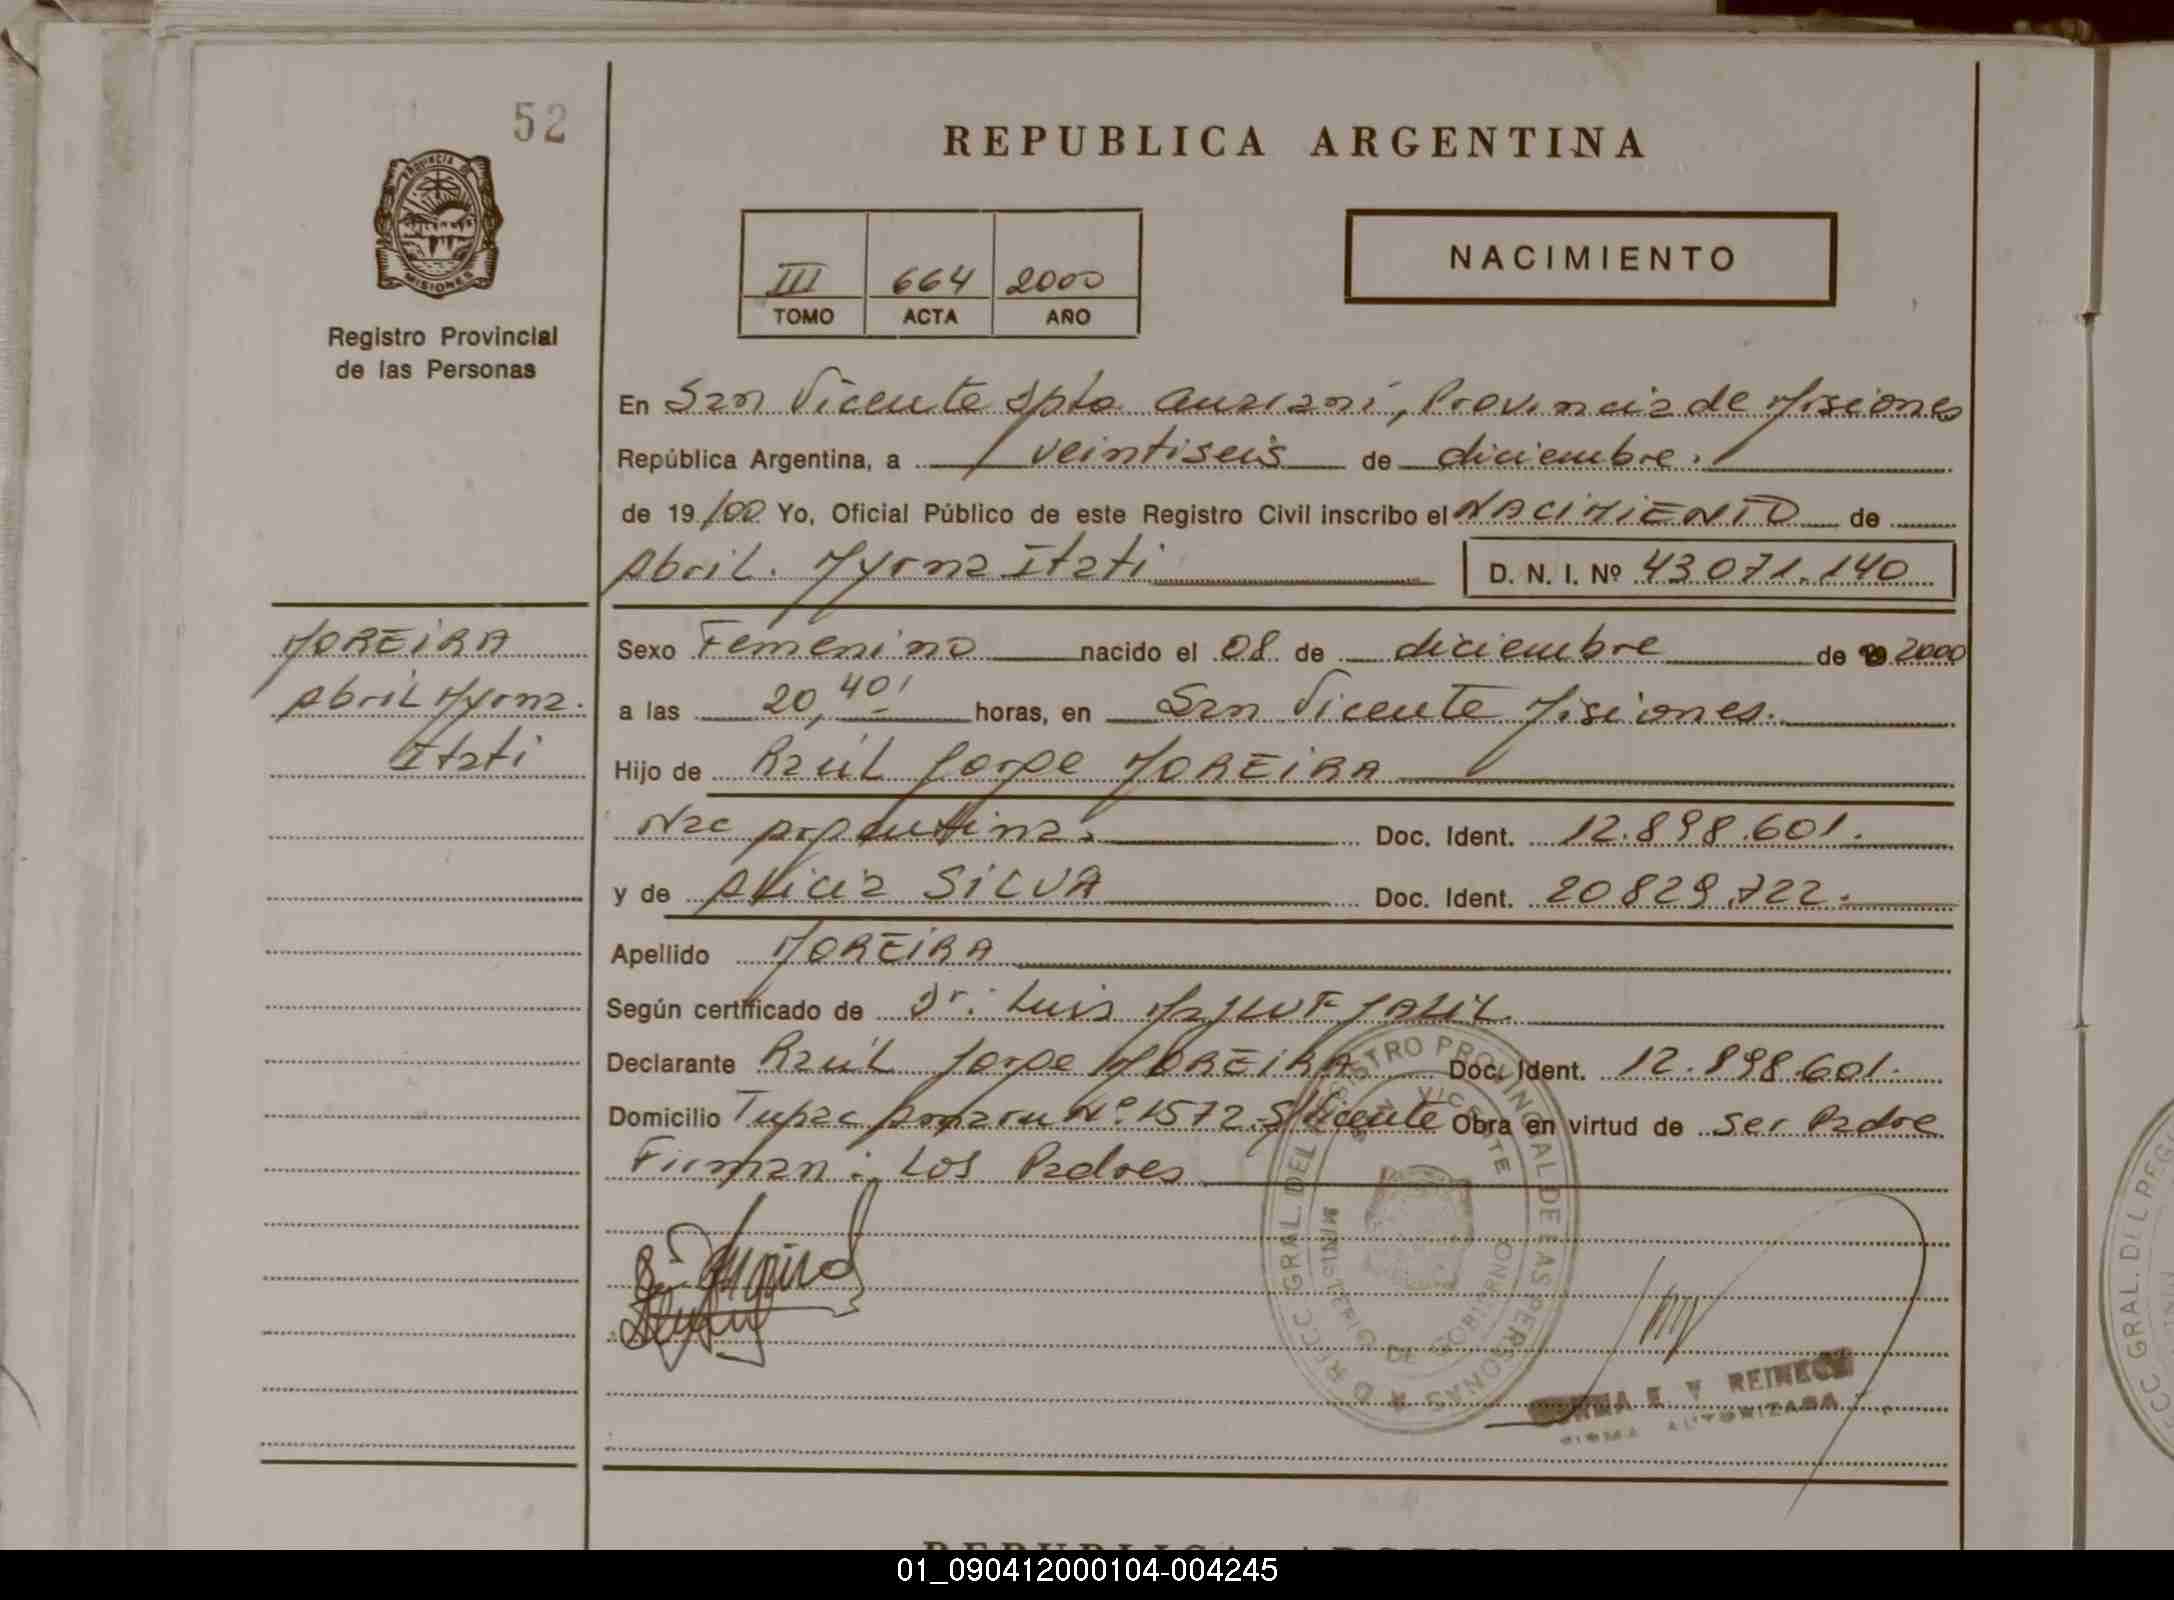 52
REPUBLICA ARGENTINA
PROVINCIA DE MISIONES
NACIMIENTO
III 664 2000
TOMO ACTA AÑO
Registro Provincial
de las Personas
En San Vicente Dpto Guaraní, Provincia de Misiones
República Argentina, a veintiseis de diciembre.
de 19/00 Yo, Oficial Público de este Registro Civil inscribo el NACIMIENTO de
Abril. Myrna Itati D. N. I. Nº 43071.140
MOREIRA
Abril Myrna.
Itati
Sexo Femenino nacido el 08 de diciembre de 2000
a las 20,40' horas, en San Vicente Misiones.
Hijo de Raúl Jorge MOREIRA
Nac Argentina. Doc. Ident. 12.898.601.
y de Alicia SILVA Doc. Ident. 20829.722.
Apellido MOREIRA
Según certificado de Dr. Luis
Declarante Raúl Jorge MOREIRA Doc. Ident. 12.898.601.
Domicilio Tupac Amaru Nº 1572. S/Vicente Obra en virtud de ser Padre
Firman: Los Padres
DIRECC GRAL. DEL REGISTRO PROVINCIAL DE LAS PERSONAS
MINISTERIO DE GOBIERNO
SAN VICENTE
E V REINECK
FIRMA AUTORIZADA
GRAL. DEL REG
REPUBLICA ARGENT
01_090412000104-004245